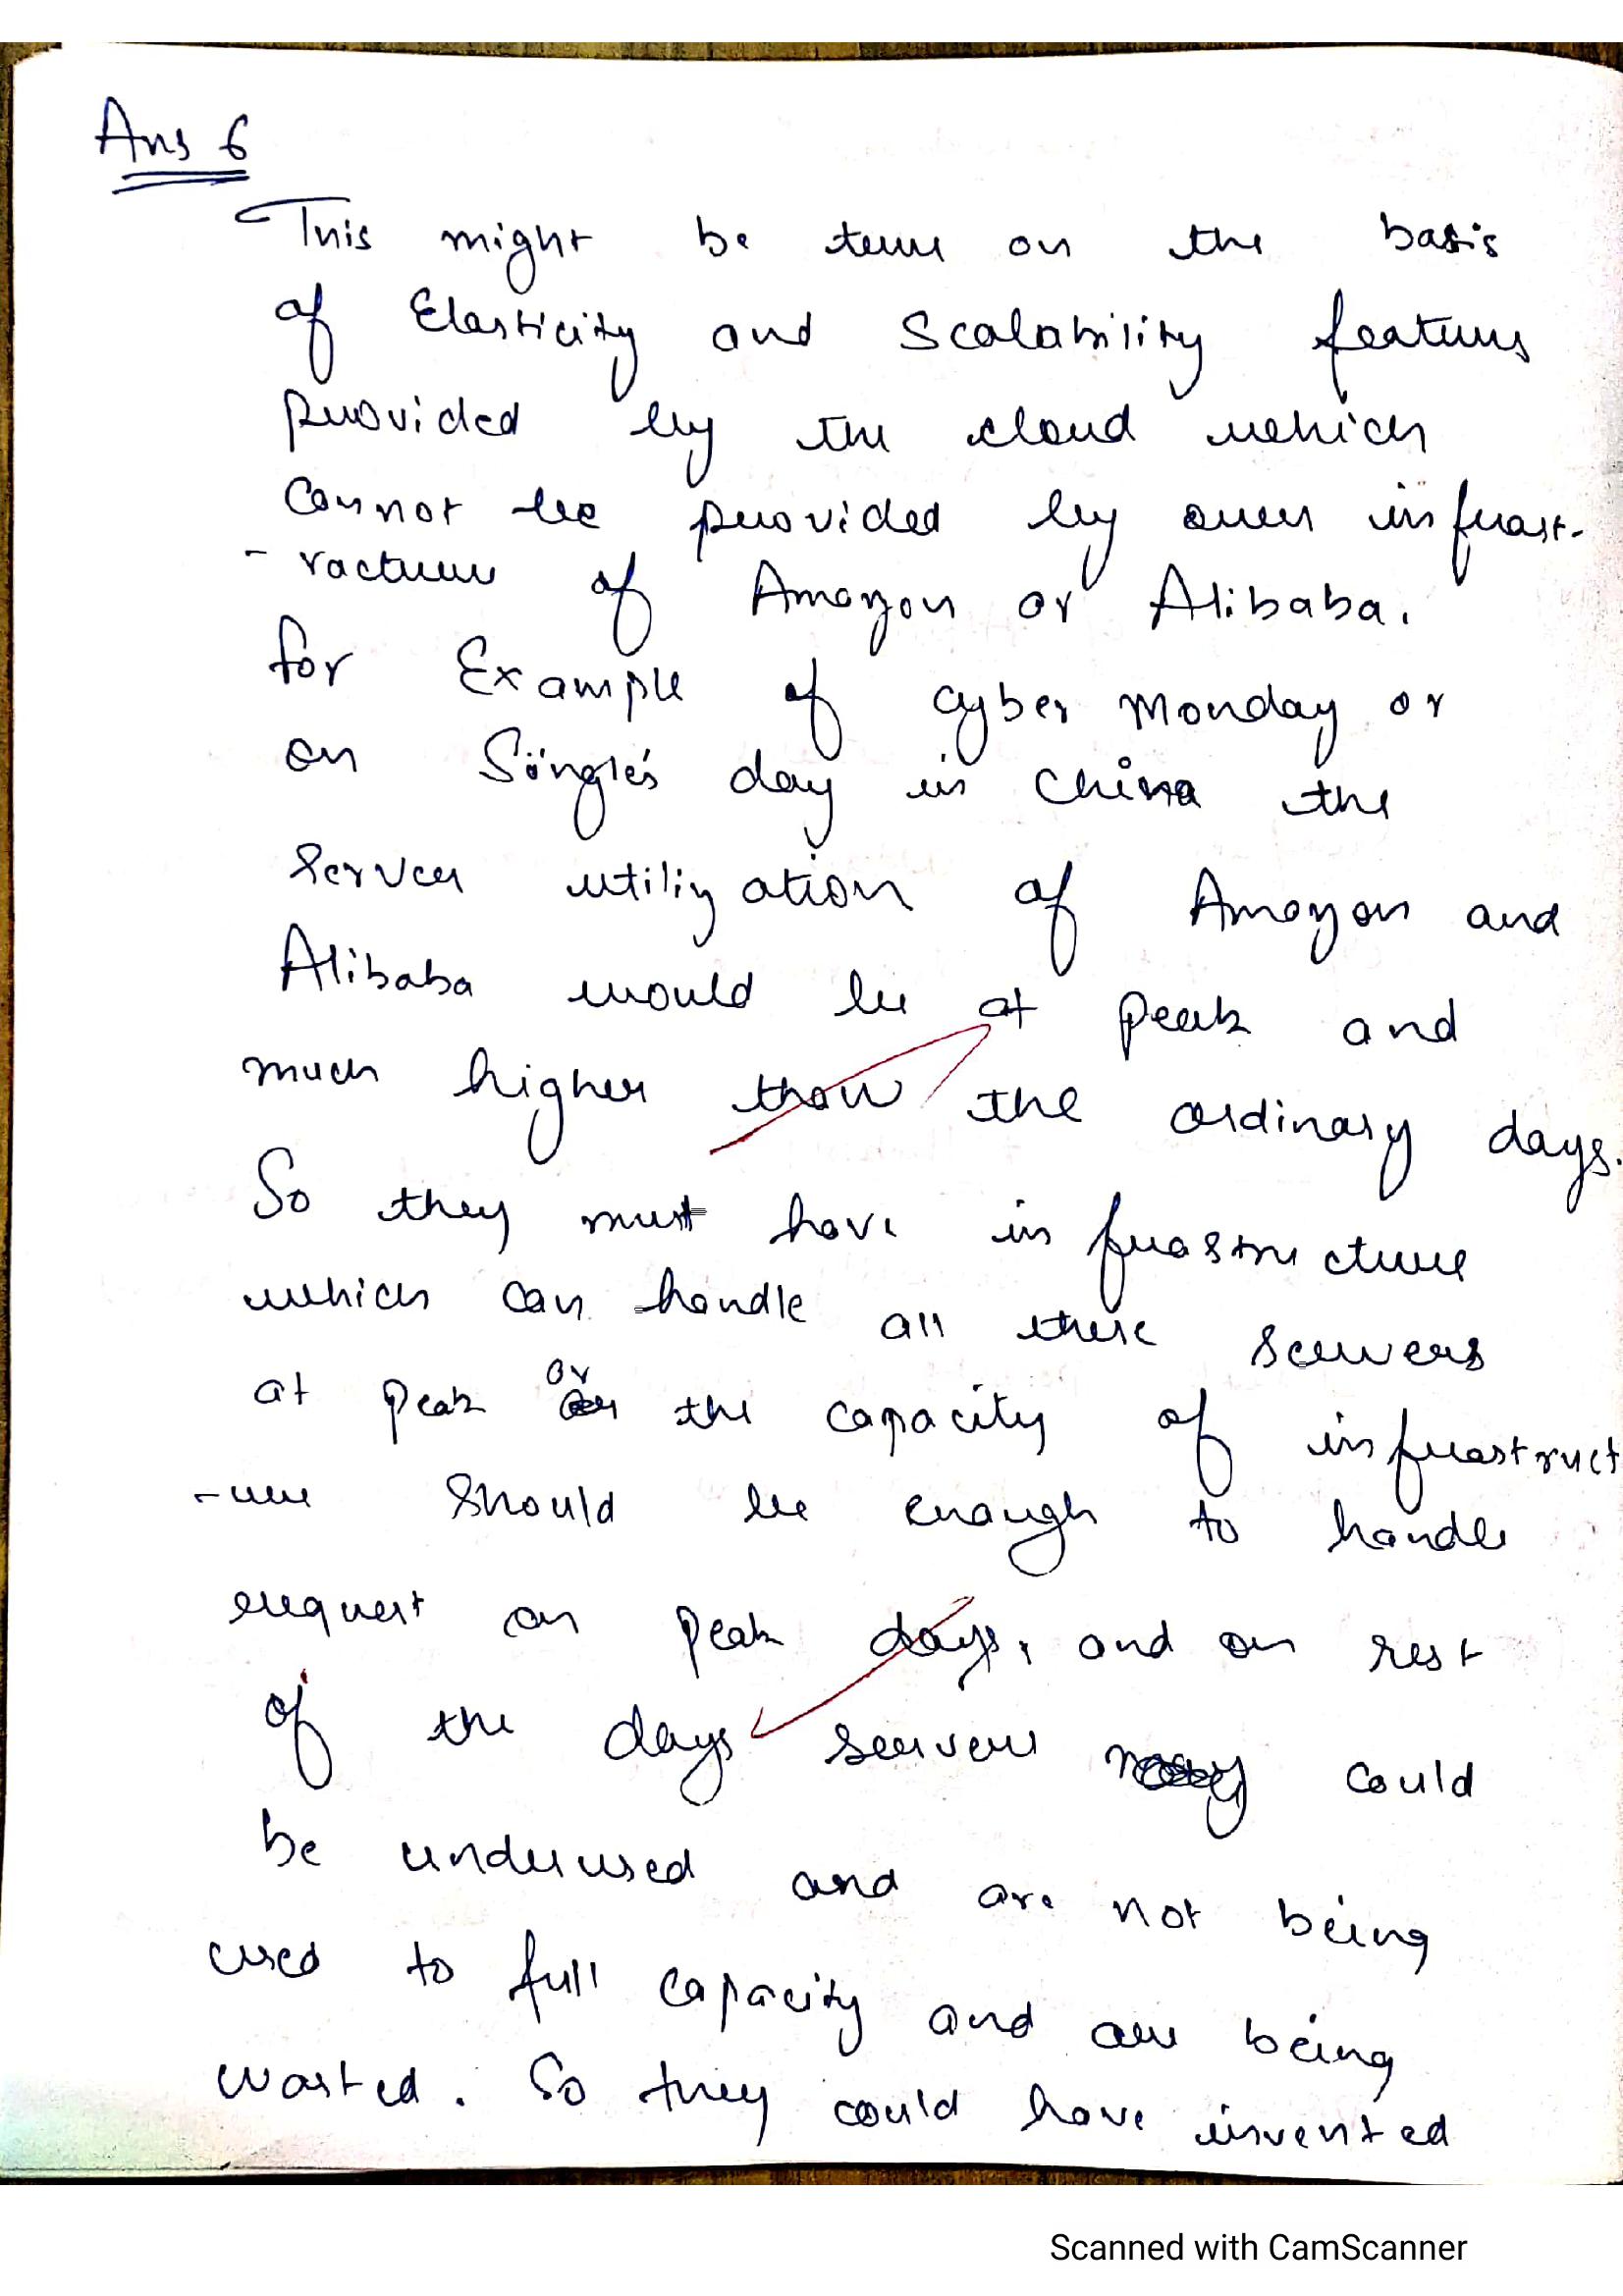 Ans 6
This might be true on the basis
of Elasticity and Scalability features
provided by the cloud which
cannot be provided by own infrast-
-racture of Amazon or Alibaba.
for Example of cyber monday or
on Single's day in China the
server utilization of Amazon and
Alibaba would be at peak and
much higher than the ordinary days.
So they must have infrastructure
which can handle all these servers
at peak or the capacity of infrastruct
-ure should be enough to handle
request on peak days, and on rest
of the days servers could
be underused and are not being
used to full capacity and are being
wasted. So they could have invented
Scanned with CamScanner